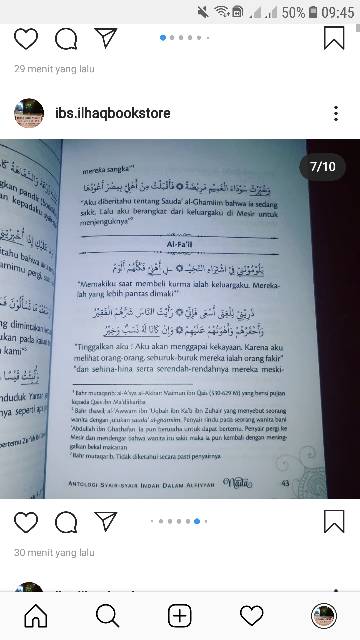 50% 09:45
29 menit yang lalu
ibs.ilhaqbookstore
7/10
mereka sangka"
"Aku diberitahu tentang Sauda' al-Ghamiim bahwa ia sedang
sakit. Lalu aku berangkat dari keluargaku di Mesir untuk
menjenguknya"
Al-Fa'il
يَلُوْمُوْنَنِي فِي اشْتِرَاءِ النَّخِيْـ ۞ ـلِ أَهْلِي فَكُلُّهُمْ أَلْوَمُ
"Memakiku saat membeli kurma ialah keluargaku. Mereka-
lah yang lebih pantas dimaki"
ذَرِيْنِي لِلْغِنَى أَسْعَى فَإِنِّي ۞ رَأَيْتُ النَّاسَ شَرُّهُمُ الْفَقِيْرُ
وَأَحْقَرُهُمْ وَأَهْوَنُهُمْ عَلَيْهِمْ ۞ وَإِنْ كَانَا لَهُ نَسَبٌ وَخِيْرُ
"Tinggalkan aku ! Aku akan menggapai kekayaan. Karena aku
melihat orang-orang, seburuk-buruk mereka ialah orang fakir"
"dan sehina-hina serta serendah-rendahnya mereka meski-
Bahr mutaqarib. al-A'sya al-Akbar: Maimun ibn Qais (530-629 M) yang berisi pujian
kepada Qais ibn Ma'dikariba
Bahr thawil. al-'Awwam ibn 'Uqbah ibn Ka'b ibn Zuhair yang menyebut seorang
wanita dengan julukan sauda' al-ghamim. Penyair rindu pada seorang wanita bani
'Abdullah ibn Ghathafan. Ia pun berusaha untuk dapat bertemu. Penyair pergi ke
Mesir dan mendengar bahwa wanita itu sakit maka ia pun kembali dengan mening-
galkan bekal makanan
Bahr mutaqarib. Tidak diketahui secara pasti penyairnya
ANTOLOGI SYAIR-SYAIR INDAH DALAM ALFIYYAH Nadia 43
30 menit yang lalu